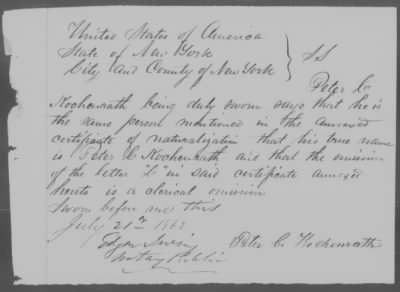 United States of America
State of New York
City and County of New York } SS
Peter C
Kochenrath being duly sworn says that he is
the same person mentioned in the annexed
certificate of naturalization that his true name
is Peter C Kochenrath and that the omission
of the letter "C" in said certificate annexed
hereto is a clerical omission
Sworn before me this
July 21st 1862
Peter C. Kochenrath
Notary Public